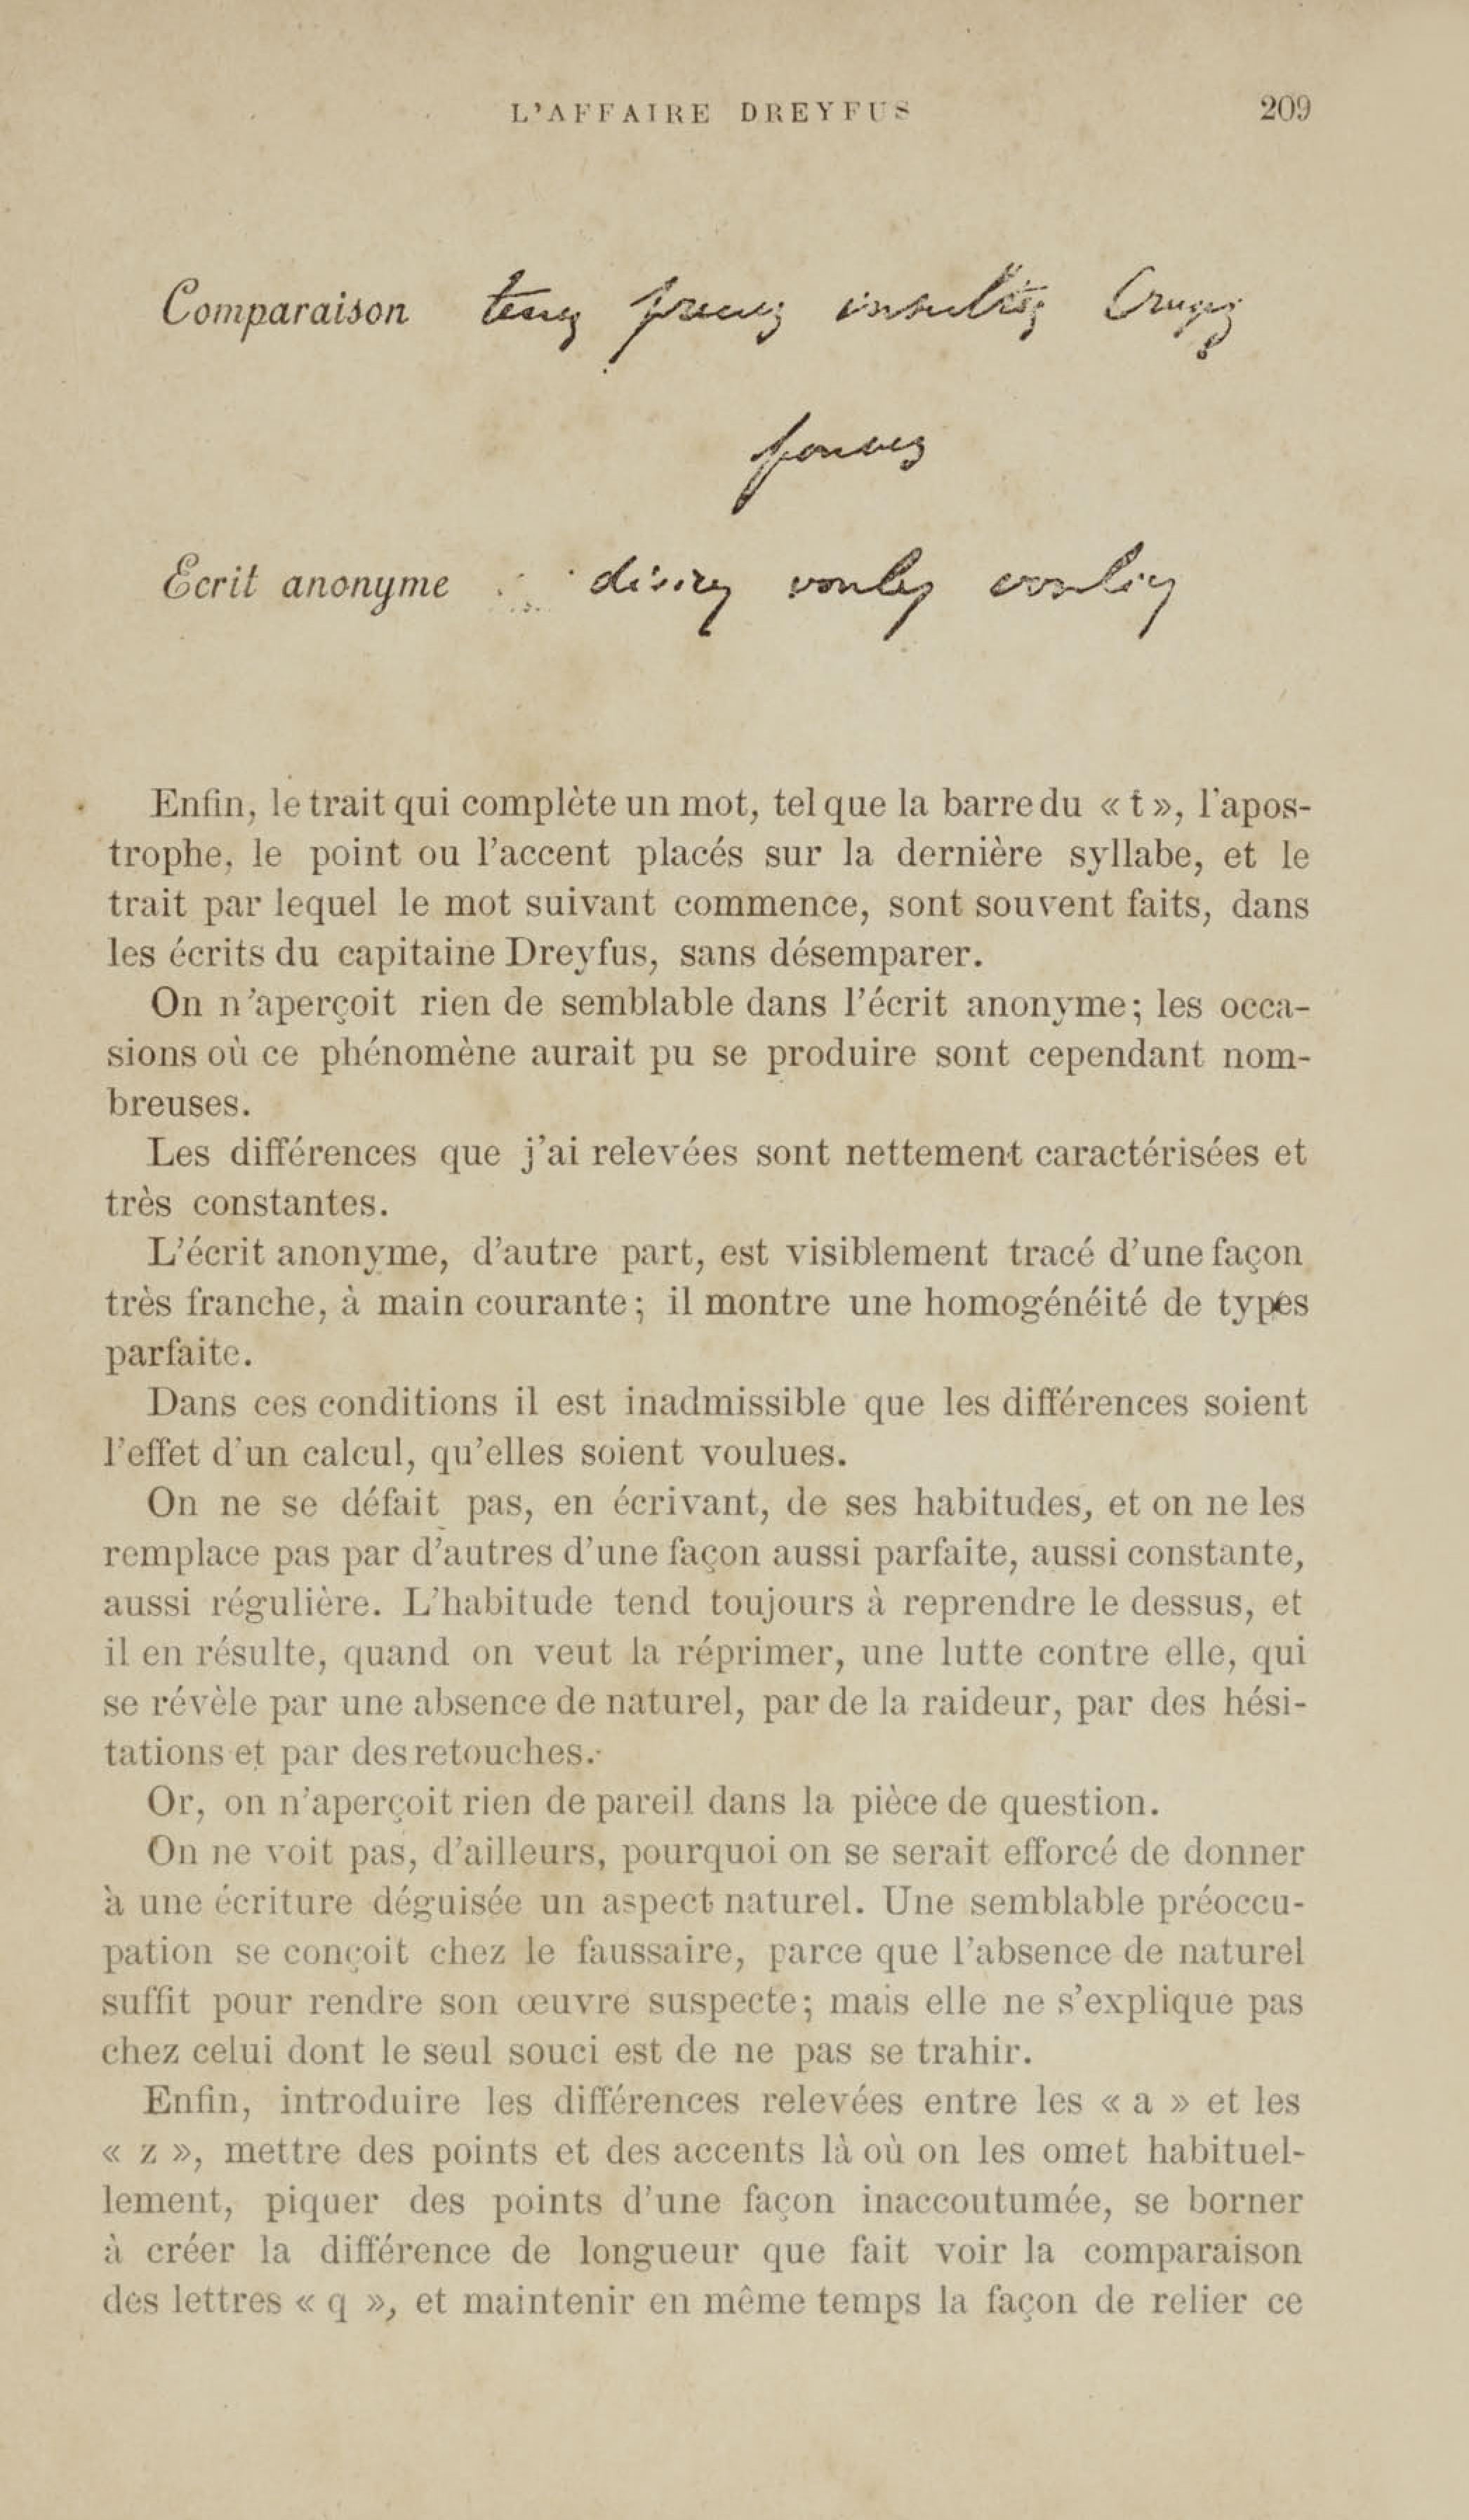 L'AFFAIRE DREYFUS 209
Comparaison tenez prenez insultiez
pouvez
Ecrit anonyme désirez voulez vouliez
Enfin, le trait qui complète un mot, tel que la barre du « t », l'apos-
trophe, le point ou l'accent placés sur la dernière syllabe, et le
trait par lequel le mot suivant commence, sont souvent faits, dans
les écrits du capitaine Dreyfus, sans désemparer.
On n'aperçoit rien de semblable dans l'écrit anonyme; les occa-
sions où ce phénomène aurait pu se produire sont cependant nom-
breuses.
Les différences que j'ai relevées sont nettement caractérisées et
très constantes.
L'écrit anonyme, d'autre part, est visiblement tracé d'une façon
très franche, à main courante; il montre une homogénéité de types
parfaite.
Dans ces conditions il est inadmissible que les différences soient
l'effet d'un calcul, qu'elles soient voulues.
On ne se défait pas, en écrivant, de ses habitudes, et on ne les
remplace pas par d'autres d'une façon aussi parfaite, aussi constante,
aussi régulière. L'habitude tend toujours à reprendre le dessus, et
il en résulte, quand on veut la réprimer, une lutte contre elle, qui
se révèle par une absence de naturel, par de la raideur, par des hési-
tations et par des retouches.
Or, on n'aperçoit rien de pareil dans la pièce de question.
On ne voit pas, d'ailleurs, pourquoi on se serait efforcé de donner
à une écriture déguisée un aspect naturel. Une semblable préoccu-
pation se conçoit chez le faussaire, parce que l'absence de naturel
suffit pour rendre son œuvre suspecte; mais elle ne s'explique pas
chez celui dont le seul souci est de ne pas se trahir.
Enfin, introduire les différences relevées entre les « a » et les
« z », mettre des points et des accents là où on les omet habituel-
lement, piquer des points d'une façon inaccoutumée, se borner
à créer la différence de longueur que fait voir la comparaison
des lettres « q », et maintenir en même temps la façon de relier ce